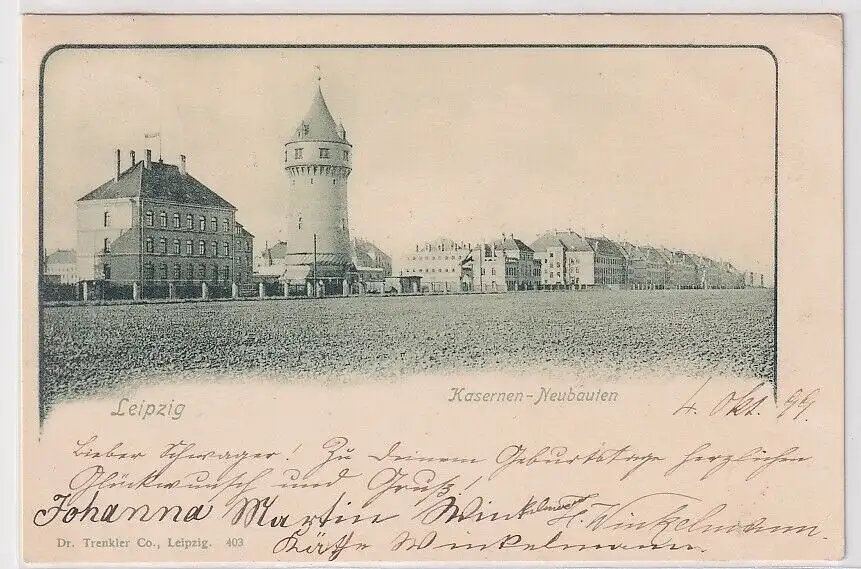 Leipzig
Kasernen-Neubauten
4. Okt. 99.
Lieber Schwager! Zu Deinem Geburtstage herzlichen
Glückwunsch und Gruß!
Johanna Martin Winkelmann H. Winkelmann.
Käthe Winkelmann.
Dr. Trenkler Co., Leipzig. 403